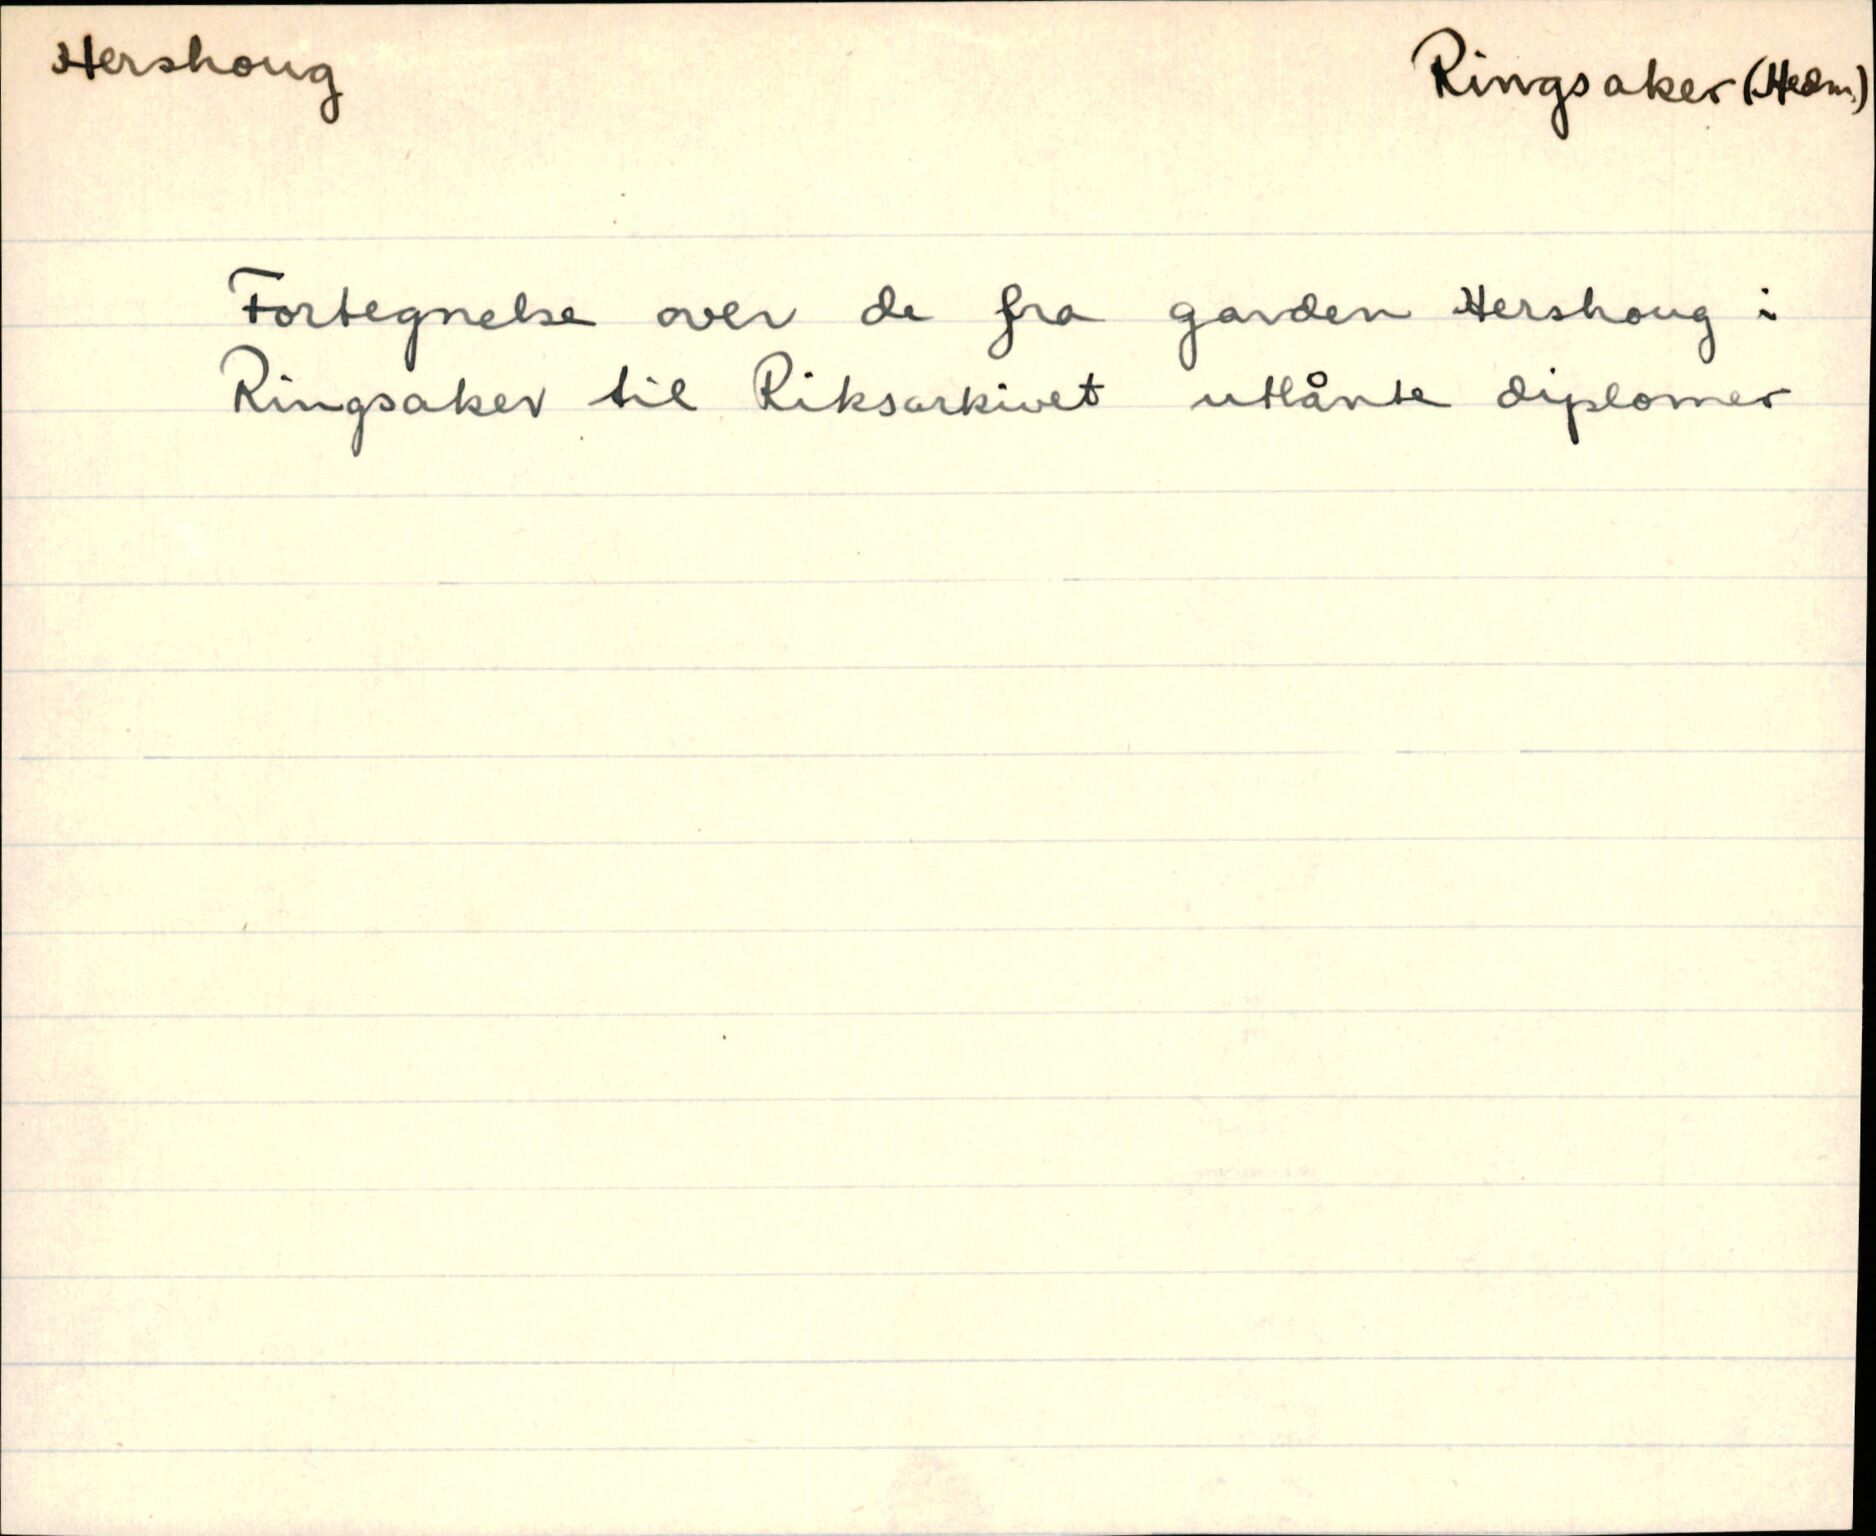 Hershoug
Ringsaker (Hedm.)
Fortegnelse over de fra garden Hershoug i
Ringsaker til Riksarkivet utlånte diplomer